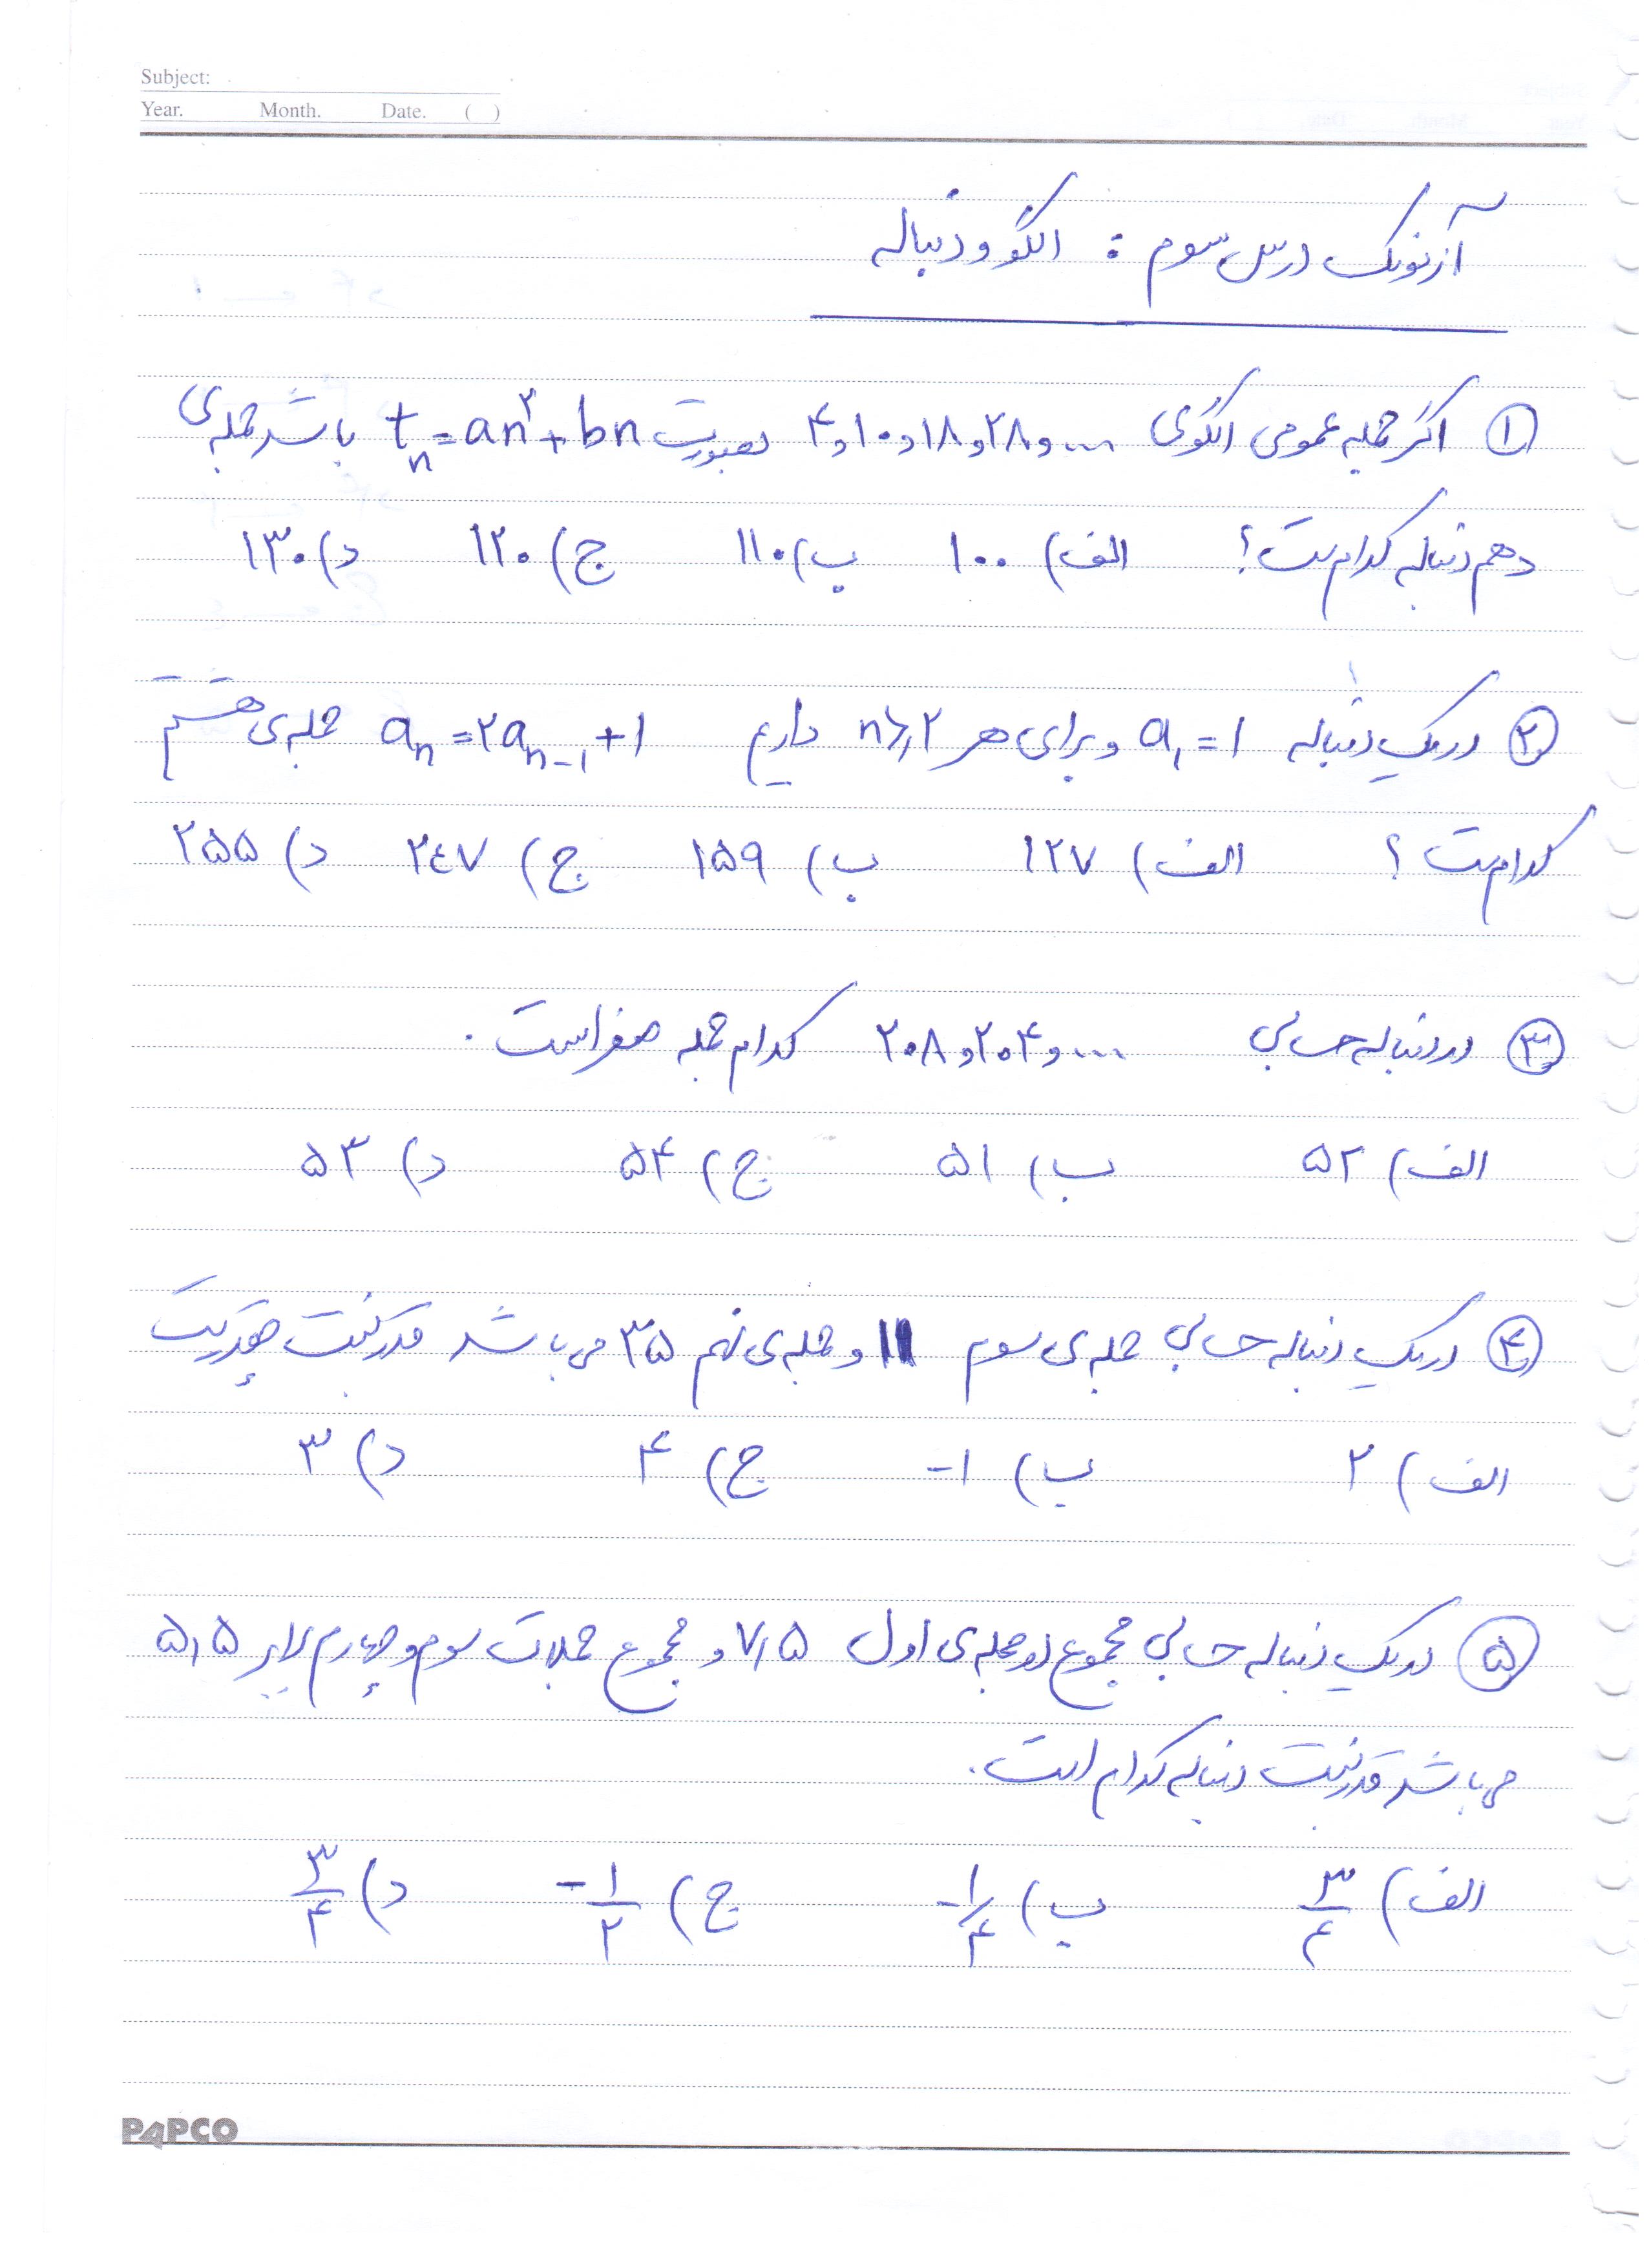 Subject:
Year. Month. Date. ( )
آزمونک درس سوم : الگو و دنباله
① اگر جمله عمومی الگوی ...و۲۸و۱۸و۱۰و۴ بصورت tₙ=an²+bn باشد جمله‌ی
دهم دنباله کدام است؟ الف) ۱۰۰ ب) ۱۱۰ ج) ۱۲۰ د) ۱۳۰
② در یک دنباله a₁=۱ و برای هر n≥۲ داریم aₙ=۲aₙ₋₁+۱ جمله‌ی هشتم
کدام است ؟ الف) ۱۲۷ ب) ۱۵۹ ج) ۲٤۷ د) ۲۵۵
③ در دنباله حسابی ...و۲۰۴و۲۰۸ کدام جمله صفر است.
الف) ۵۲ ب) ۵۱ ج) ۵۴ د) ۵۳
④ در یک دنباله حسابی جمله‌ی سوم 11 و جمله‌ی نهم ۳۵ می باشد قدرنسبت چقدر است
الف) ۲ ب) -۱ ج) ۴ د) ۳
⑤ در یک دنباله حسابی مجموع دو جمله‌ی اول ۷٫۵ و مجموع جملات سوم و چهارم برابر ۵٫۵
می باشد قدرنسبت دنباله کدام است.
الف) ۳/۴ ب) -۱/۴ ج) -۱/۲ د) ۳/۴
PAPCO